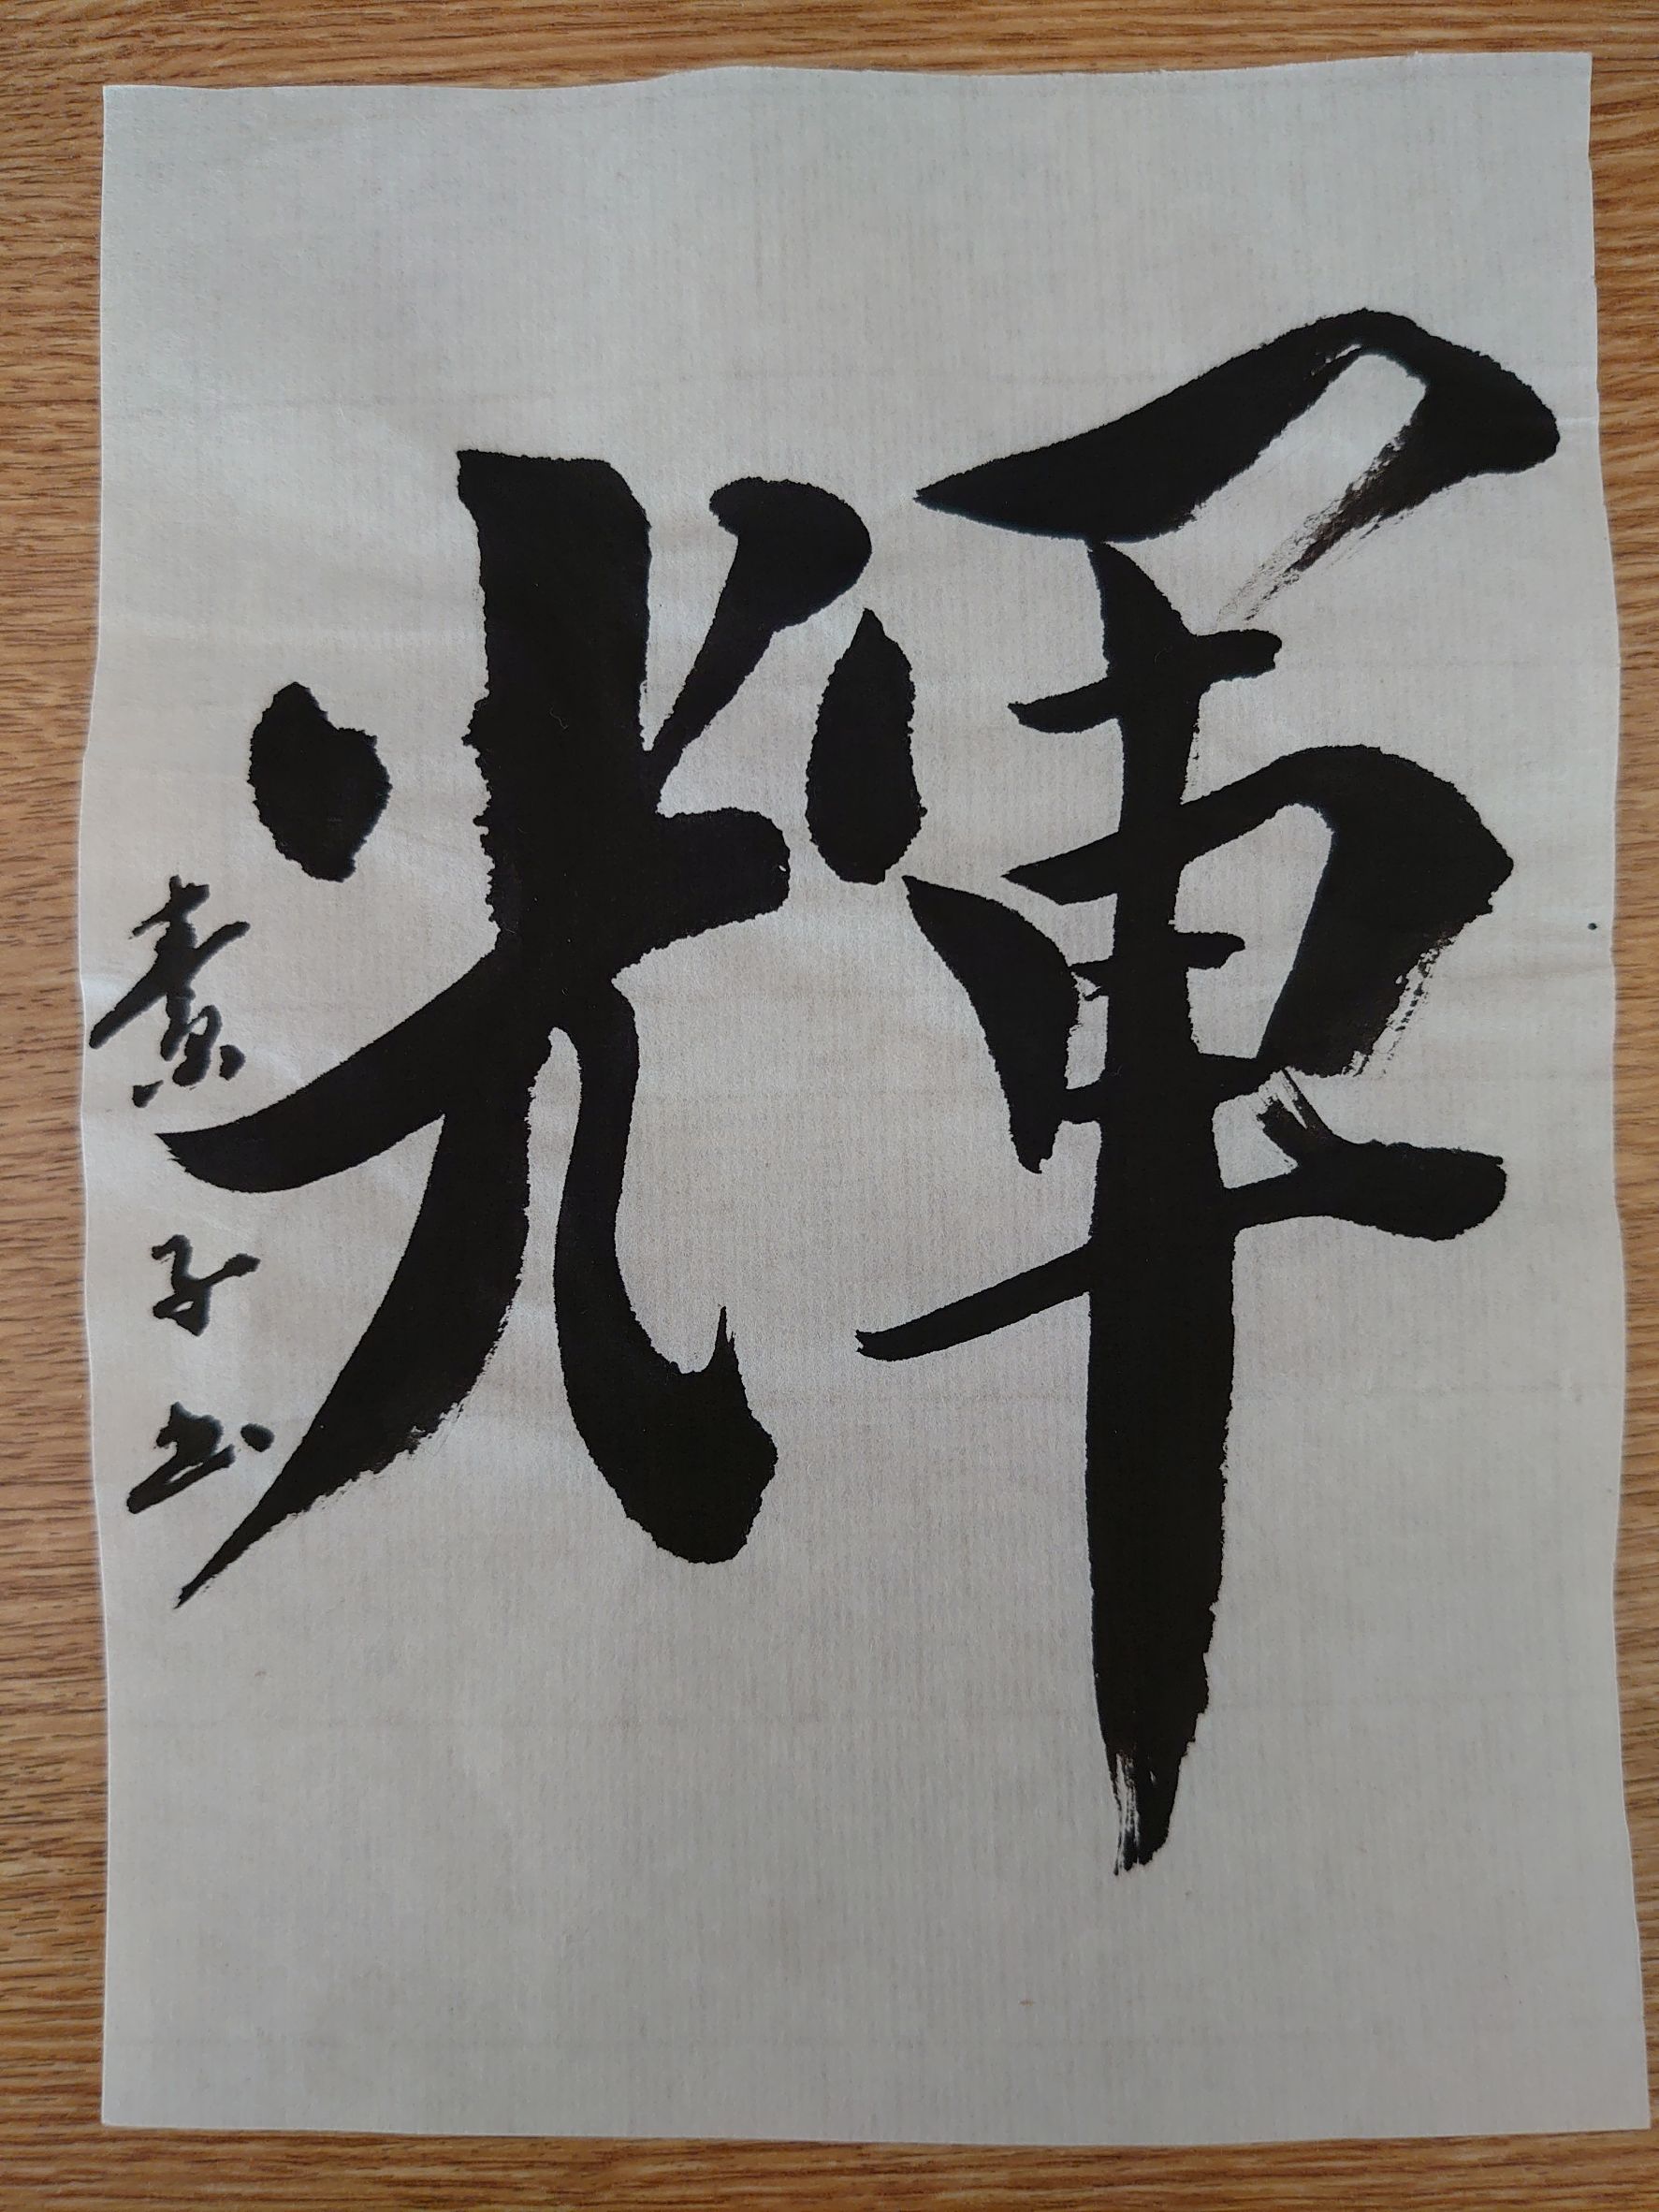 輝
素子書